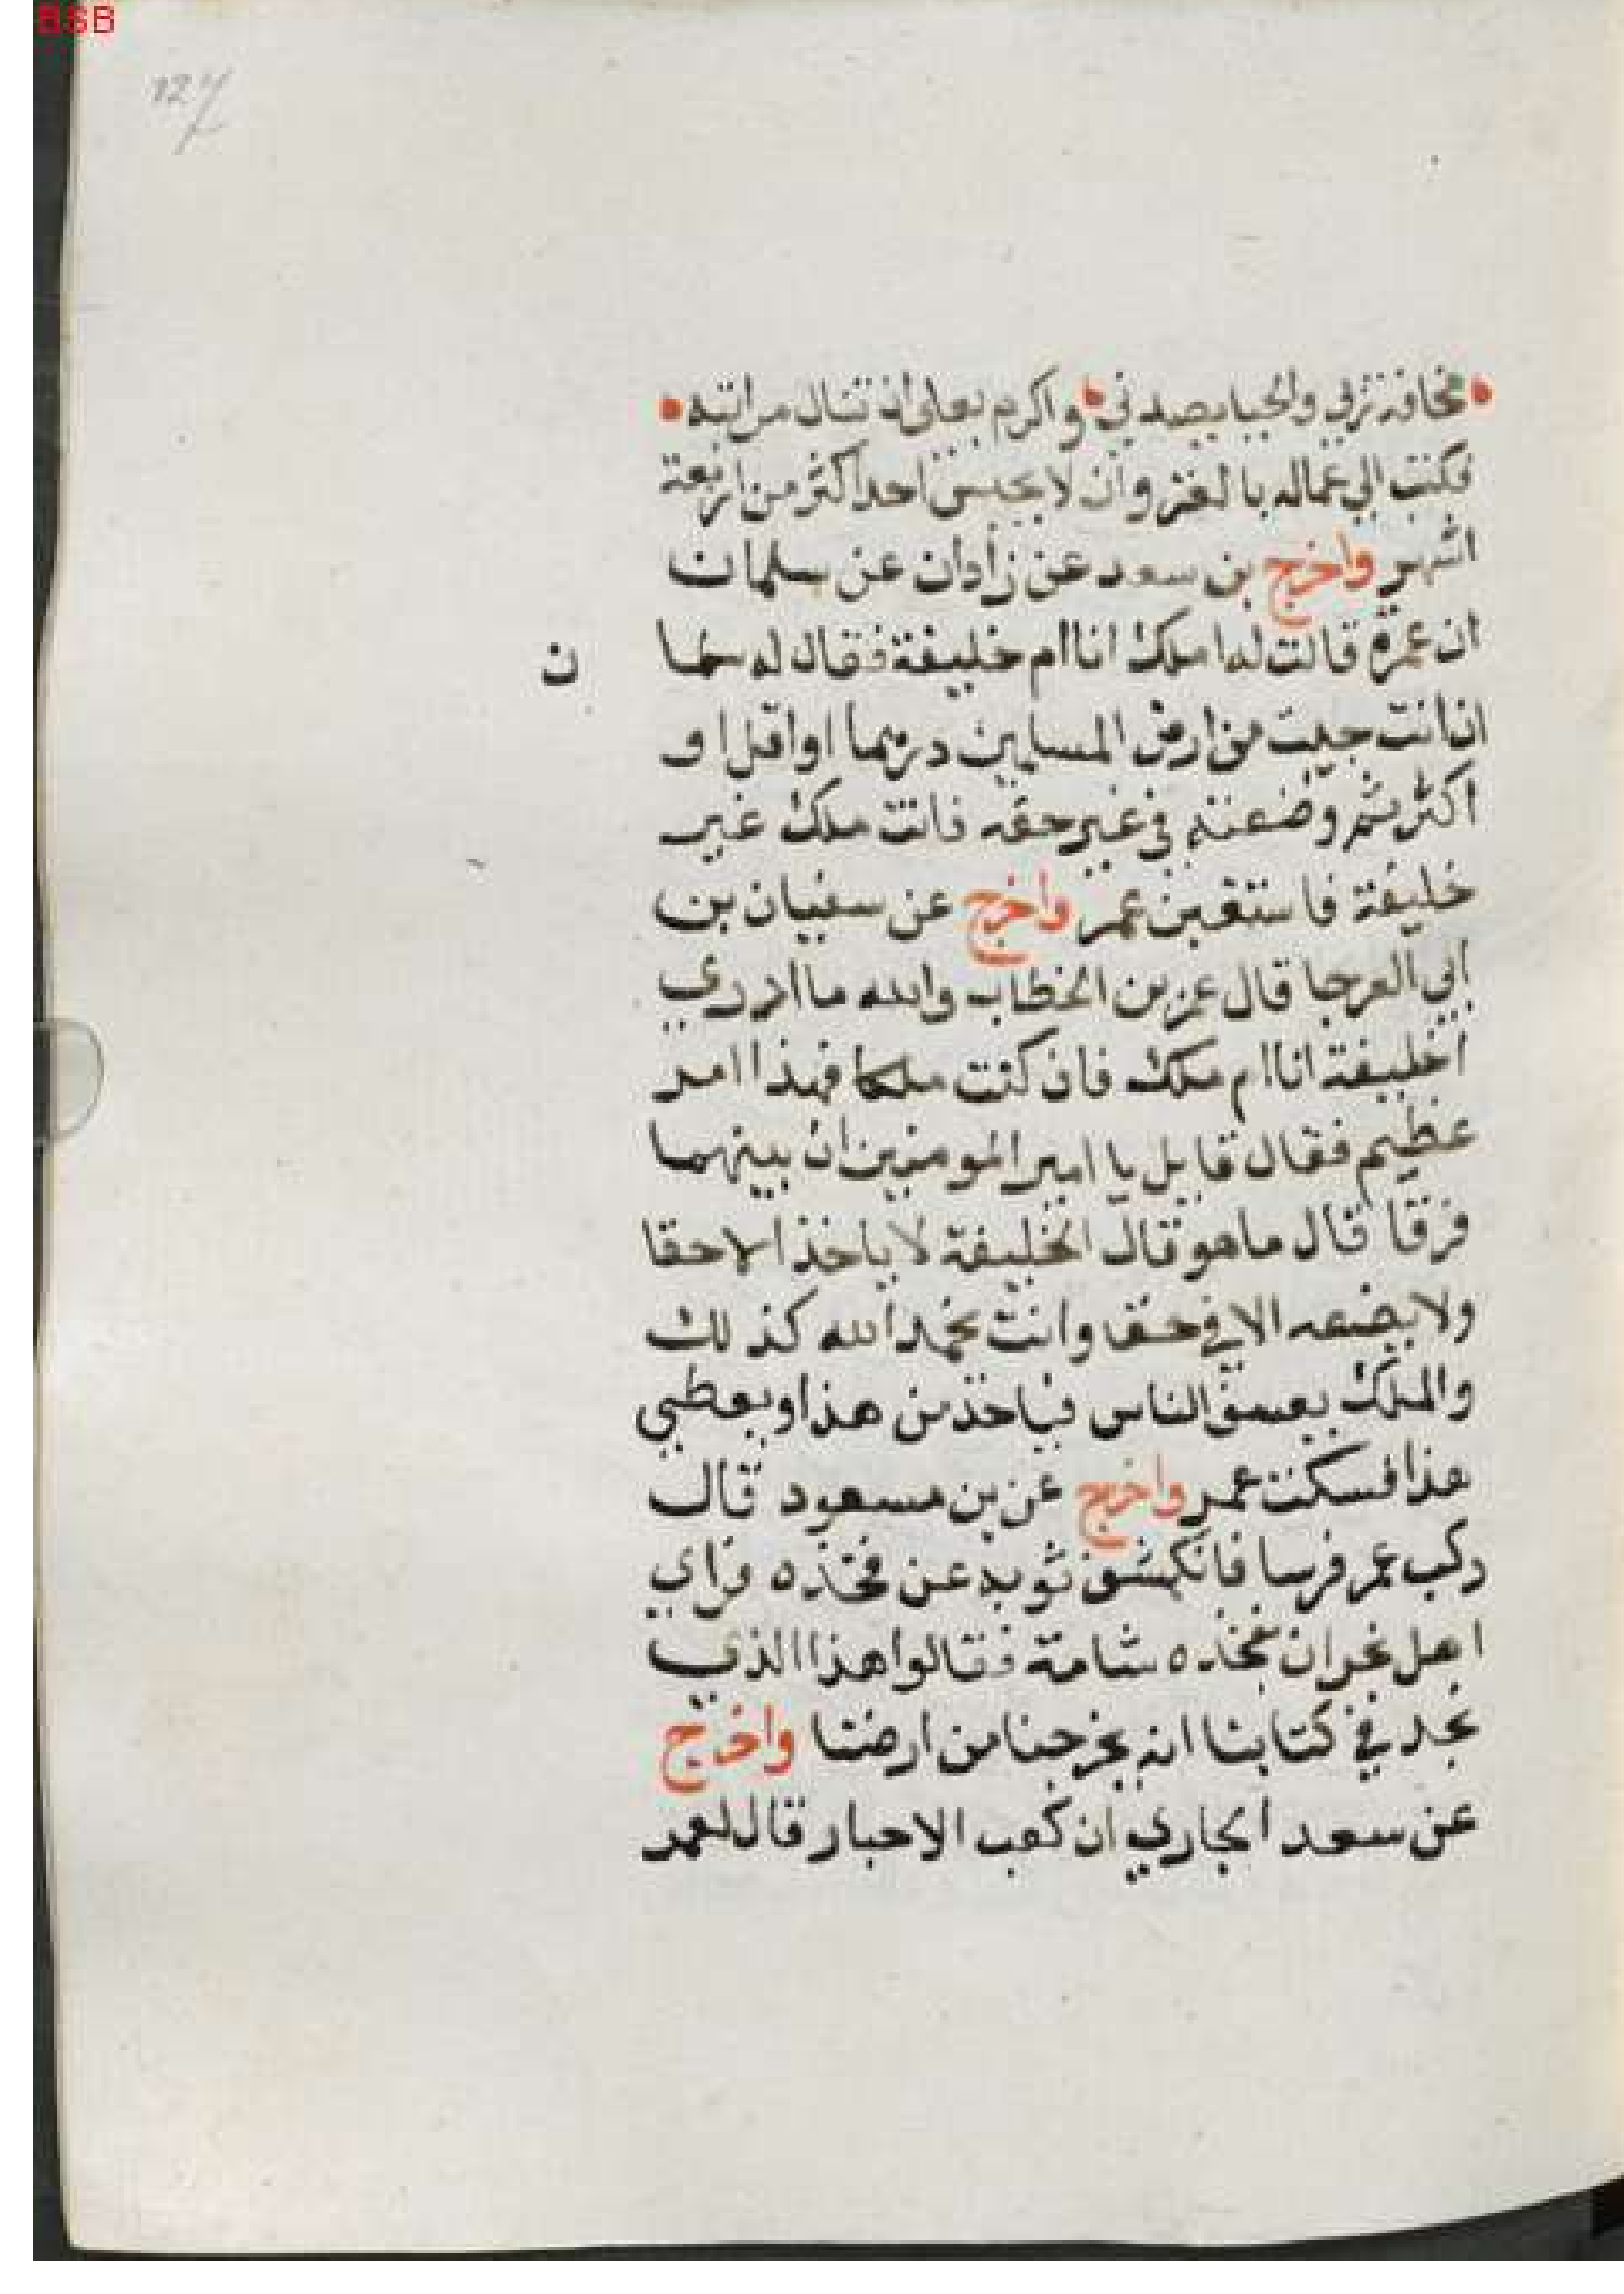 BSB
127
مخافة ربي والحيا يصدني واكرم بعلي ان تنال مراتبه
فكتب الي عماله بالغزو ان لا يحبس احد اكثر من اربعة
اشهر واخرج بن سعد عن زادان عن سلمان
ان عمر قالت له املك انا ام خليفة فقال له سلما
ن
ان انت جبيت من ارض المسلمين درهما او اقل او
اكثر ثم وضعته في غير حقه فانت ملك غير
خليفة فاستعبر عمر واخرج عن سفيان بن
ابي العرجا قال عمر بن الخطاب والله ما ادري
اخليفة انا ام ملك فان كنت ملكا فهذا امر
عظيم فقال قايل يا امير المومنين ان بينهما
فرقا قال ما هو قال الخليفة لا ياخذ الا حقا
ولا يضعه الا في حق وانت بحمد الله كذلك
والملك يعسف الناس فياخذ من هذا ويعطي
هذا فسكت عمر واخرج عن بن مسعود قال
ركب عمر فرسا فانكشف ثوبه عن فخذه فراي
اهل نجران بفخذه شامة فقالوا هذا الذي
نجد في كتابنا انه يخرجنا من ارضنا واخرج
عن سعد الجاري ان كعب الاحبار قال لعمر